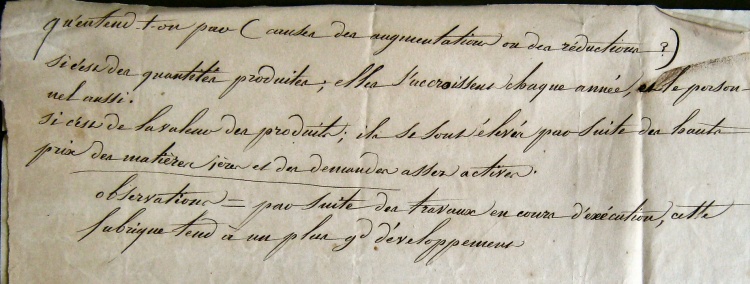 qu'entend-t-on par (causes des augmentations ou des réductions ?)
si c'est des quantités produites ; elles s'accroissent chaque année, et le person-
nel aussi.
si c'est de la valeur des produits ; ils se sont élevés par suite des hauts
prix des matières 1ères et des demandes assez actives.
observations = par suite des travaux en cours d'exécution, cette
fabrique tend à un plus gd développement